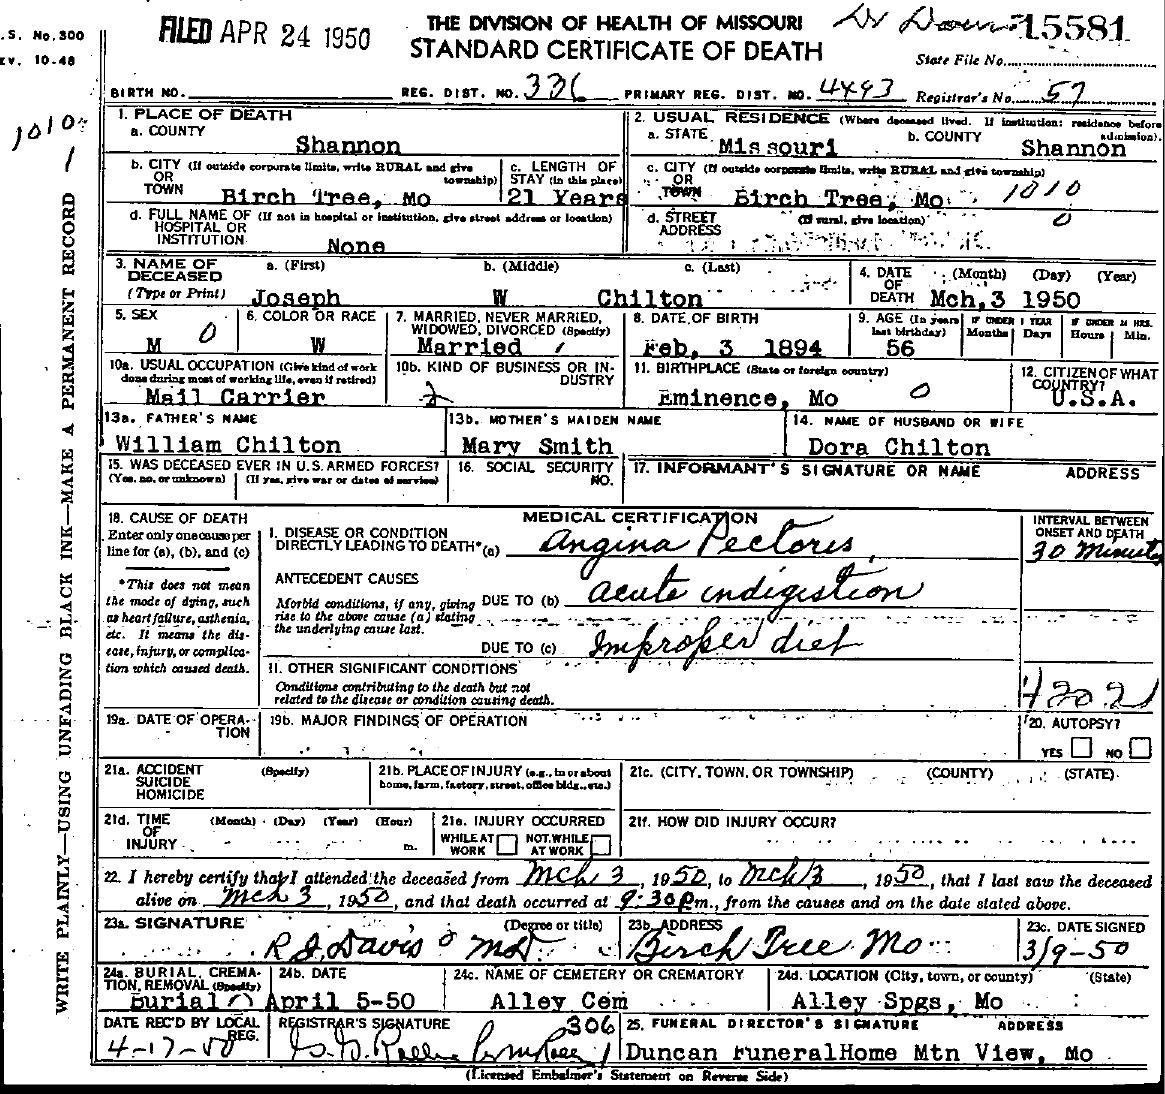 .S. No.300
EV. 10-48
FILED APR 24 1950
THE DIVISION OF HEALTH OF MISSOURI
STANDARD CERTIFICATE OF DEATH
Dr 15581
State File No.
BIRTH NO. REG. DIST. NO. 336 PRIMARY REG. DIST. NO. 4493 Registrar's No. 57
1010
1
WRITE PLAINLY—USING UNFADING BLACK INK—MAKE A PERMANENT RECORD
1. PLACE OF DEATH
a. COUNTY
Shannon
2. USUAL RESIDENCE (Where deceased lived. If institution: residence before admission).
a. STATE Missouri b. COUNTY Shannon
b. CITY (If outside corporate limits, write RURAL and give township)
OR
TOWN Birch Tree, Mo
c. LENGTH OF
STAY (in this place)
21 Years
c. CITY (If outside corporate limits, write RURAL and give township)
OR
TOWN Birch Tree, Mo 1010
d. FULL NAME OF (If not in hospital or institution, give street address or location)
HOSPITAL OR
INSTITUTION None
d. STREET (If rural, give location) 0
ADDRESS
3. NAME OF DECEASED
(Type or Print)
a. (First) b. (Middle) c. (Last)
Joseph W Chilton
4. DATE OF DEATH (Month) (Day) (Year)
Mch, 3 1950
5. SEX
M 0
6. COLOR OR RACE
W
7. MARRIED, NEVER MARRIED,
WIDOWED, DIVORCED (Specify)
Married
8. DATE OF BIRTH
Feb, 3 1894
9. AGE (In years last birthday)
56
IF UNDER 1 YEAR
Months Days
IF UNDER 24 HRS.
Hours Min.
10a. USUAL OCCUPATION (Give kind of work
done during most of working life, even if retired)
Mail Carrier
10b. KIND OF BUSINESS OR INDUSTRY
11. BIRTHPLACE (State or foreign country)
Eminence, Mo 0
12. CITIZEN OF WHAT COUNTRY?
U.S.A.
13a. FATHER'S NAME
William Chilton
13b. MOTHER'S MAIDEN NAME
Mary Smith
14. NAME OF HUSBAND OR WIFE
Dora Chilton
15. WAS DECEASED EVER IN U.S. ARMED FORCES?
(Yes, no, or unknown) (If yes, give war or dates of service)
16. SOCIAL SECURITY NO.
17. INFORMANT'S SIGNATURE OR NAME ADDRESS
18. CAUSE OF DEATH
Enter only one cause per
line for (a), (b), and (c)
*This does not mean
the mode of dying, such
as heart failure, asthenia,
etc. It means the disease,
injury, or complication
which caused death.
MEDICAL CERTIFICATION
I. DISEASE OR CONDITION
DIRECTLY LEADING TO DEATH*(a) Angina Pectoris,
ANTECEDENT CAUSES
Morbid conditions, if any, giving
rise to the above cause (a) stating
the underlying cause last.
DUE TO (b) acute indigestion
DUE TO (c) Improper diet
II. OTHER SIGNIFICANT CONDITIONS
Conditions contributing to the death but not
related to the disease or condition causing death.
INTERVAL BETWEEN
ONSET AND DEATH
30 Minutes
4202
19a. DATE OF OPERATION
19b. MAJOR FINDINGS OF OPERATION
20. AUTOPSY?
YES NO
21a. ACCIDENT
SUICIDE
HOMICIDE
(Specify)
21b. PLACE OF INJURY (e.g., in or about
home, farm, factory, street, office bldg., etc.)
21c. (CITY, TOWN, OR TOWNSHIP) (COUNTY) (STATE)
21d. TIME OF INJURY (Month) (Day) (Year) (Hour)
m.
21e. INJURY OCCURRED
WHILE AT WORK NOT WHILE AT WORK
21f. HOW DID INJURY OCCUR?
22. I hereby certify that I attended the deceased from Mch 3, 1950, to Mch 3, 1950, that I last saw the deceased
alive on Mch 3, 1950, and that death occurred at 9:30 Pm., from the causes and on the date stated above.
23a. SIGNATURE (Degree or title)
R J Davis MD
23b. ADDRESS
Birch Tree Mo
23c. DATE SIGNED
3/9-50
24a. BURIAL, CREMATION, REMOVAL (Specify)
Burial
24b. DATE
April 5-50
24c. NAME OF CEMETERY OR CREMATORY
Alley Cem
24d. LOCATION (City, town, or county) (State)
Alley Spgs, Mo
DATE REC'D BY LOCAL REG.
4-17-50
REGISTRAR'S SIGNATURE 306
25. FUNERAL DIRECTOR'S SIGNATURE ADDRESS
Duncan FuneralHome Mtn View, Mo
(Licensed Embalmer's Statement on Reverse Side)